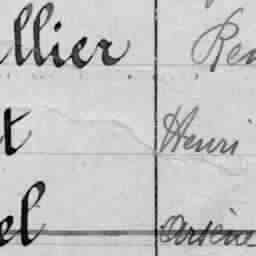 llier Ren
t Henri
el Arsène